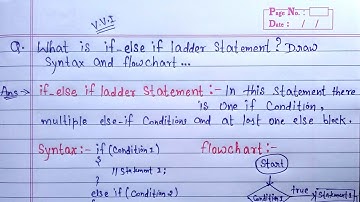 V.V.I
Page No. :
Date : / /
Q. What is if-else if ladder Statement? Draw
Syntax and flowchart...
Ans -> if-else if ladder Statement :- In this Statement there
is one if Condition,
multiple else-if Conditions and at last one else block.
Syntax:- if (Condition 1)
{
// Statement 1;
}
else if (Condition 2)
flowchart:-
Start
Condition 1
true
Statement 1